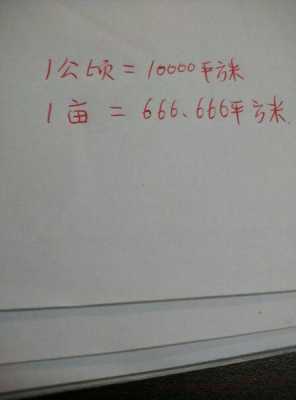 1公顷=10000平方米
1亩=666、666平方米